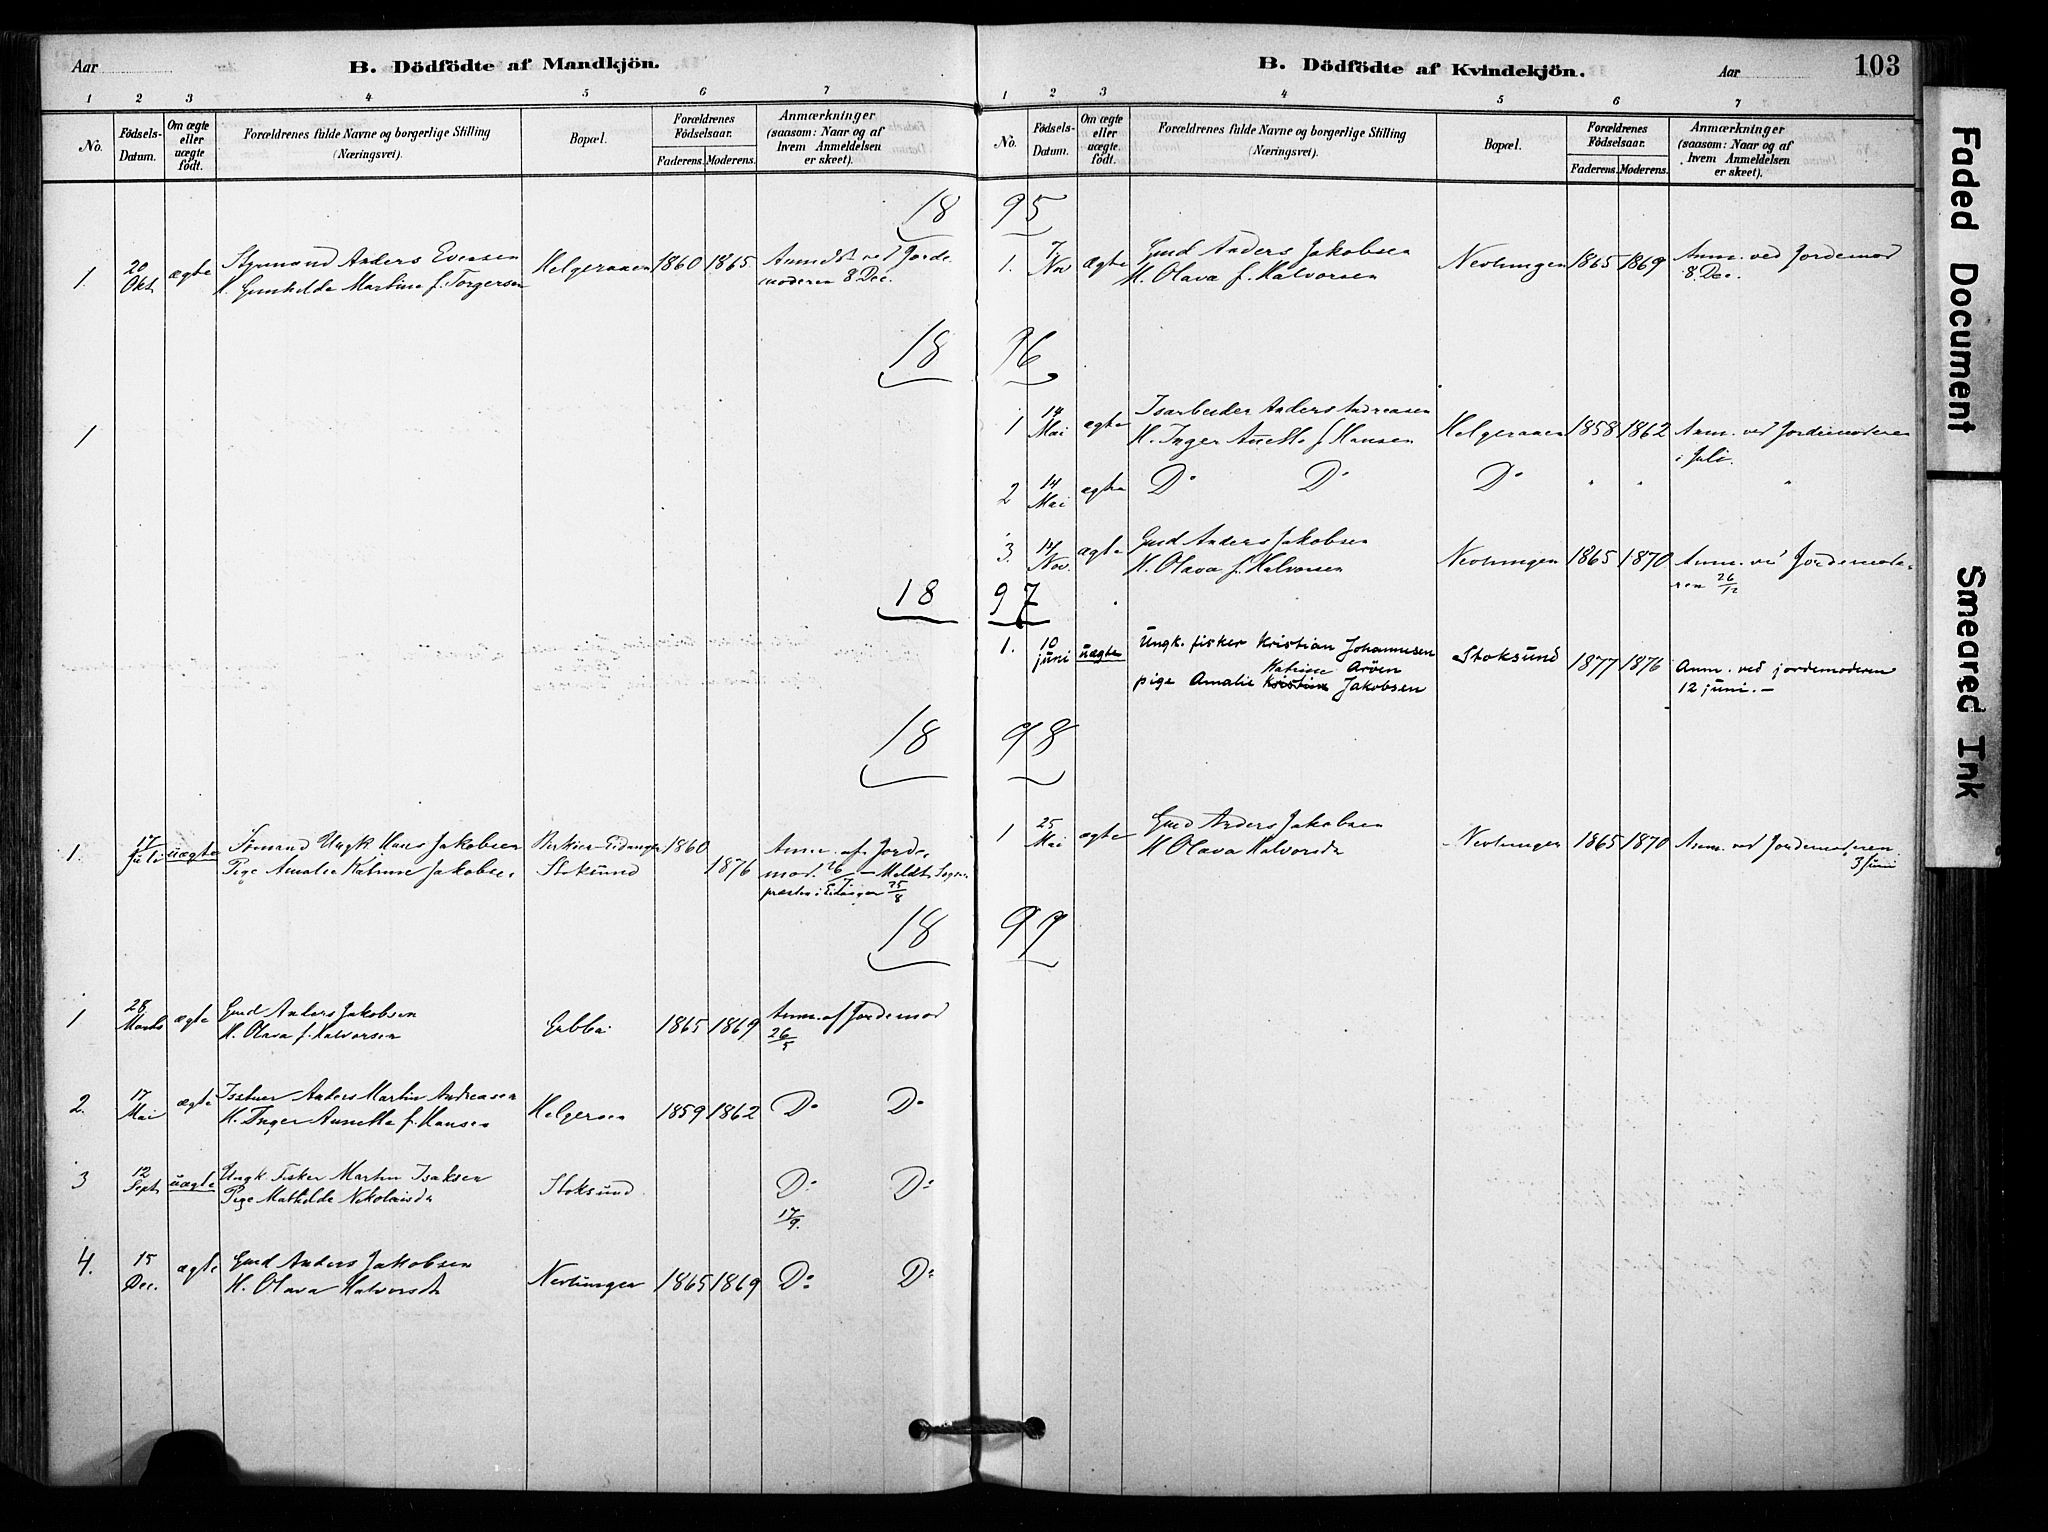 Aar
B. Dödfödte af Mandkjön.
1 2 3 4 5 6 7
No.
Födsels-Datum.
Om ægte eller uægte födt.
Forældrenes fulde Navne og borgerlige Stilling (Næringsvei).
Bopæl.
Forældrenes Födselsaar.
Faderens. Moderens.
Anmærkninger (saasom: Naar og af hvem Anmeldelsen er skeet).
18
1. 20 Okt ægte Styrmand Anders Evensen Helgeraaen 1860 1865 Anmeldt ved Jorde-
H. Gunhilde Martine f. Torgersen moderen 8 Dec.
18
1
18
18
1. 17 Juli uægte Ungk Hans Jakobsen Eidanger 1860 Anm. af Jorde-
Pige Amalie Katrine Jakobse. Stoksund 1876 mod. 26/7 – Meldt Sogne-
præsten i Eidanger 25/8
18
1 28 Marts ægte Gmd Anders Jakobsen 1865 1869 Anm. af Jordemod
H. Olava f. Halvorsen 26/5
2. 17 Mai ægte Anders Martin Andreasen Helgeroa 1859 1862 Do Do
H. Inger Annette f. Hansen
3 12 Sept uægte Ungk Fisker Martin Isaksen Stoksund Do Do
Pige Mathilde Nikolaisdr 17/9.
4. 15 Dec. ægte Gmd Anders Jakobsen Nevlungen 1865 1869 Do Do
H. Olava Halvorsdr
B. Dödfödte af Kvindekjön.
Aar
103
1 2 3 4 5 6 7
No.
Födsels-Datum.
Om ægte eller uægte födt.
Forældrenes fulde Navne og borgerlige Stilling (Næringsvei).
Bopæl.
Forældrenes Födselsaar.
Faderens. Moderens.
Anmærkninger (saasom: Naar og af hvem Anmeldelsen er skeet).
95
1. 7 Nov ægte Gmd Anders Jakobsen Nevlungen 1865 1869 Anm. ved Jordemod
H. Olava f. Halvorsen 8 Dec.
96
1 14 Mai ægte Isarbeider Anders Andreasen Helgeraaen 1858 1862 Anm. ved Jordemoderen
H. Inger Anette f Hansen i Juli.
2 14 Mai ægte Do Do Do " " "
3. Nov. ægte Gmd Anders Jakobsen Nevlungen 1865 1870 Anm. ved Jordemode-
H. Olava f. Halvorsen ren 26/12
97
1. 10 juni uægte Ungk. fisker Kristian Johannesen Stoksund 1877 1876 Anm. ved jordemoderen
Katrine Arøen 12 juni. –
pige Amalie Kristine Jakobsen
98
1 25 Mai ægte Gmd Anders Jakobsen Nevlungen 1865 1870 Anm. ved Jordemoderen
H Olava Halvorsdr 3 Juni
99
Faded Document
Smeared Ink